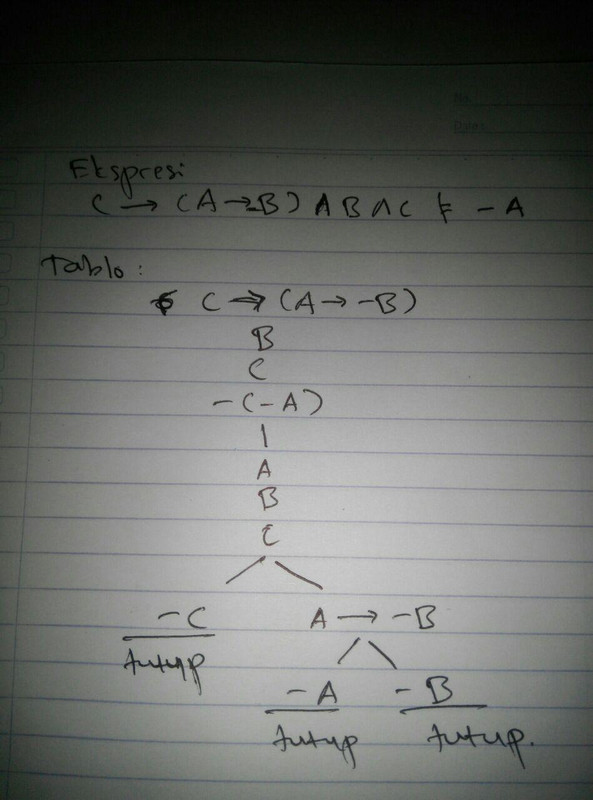 No
Date
Ekspresi
C → (A → -B) ∧ B ∧ C ⊧ - A
Tablo :
C → (A → -B)
B
C
- (- A)
|
A
B
C
- C A → - B
tutup
- A - B
tutup tutup.